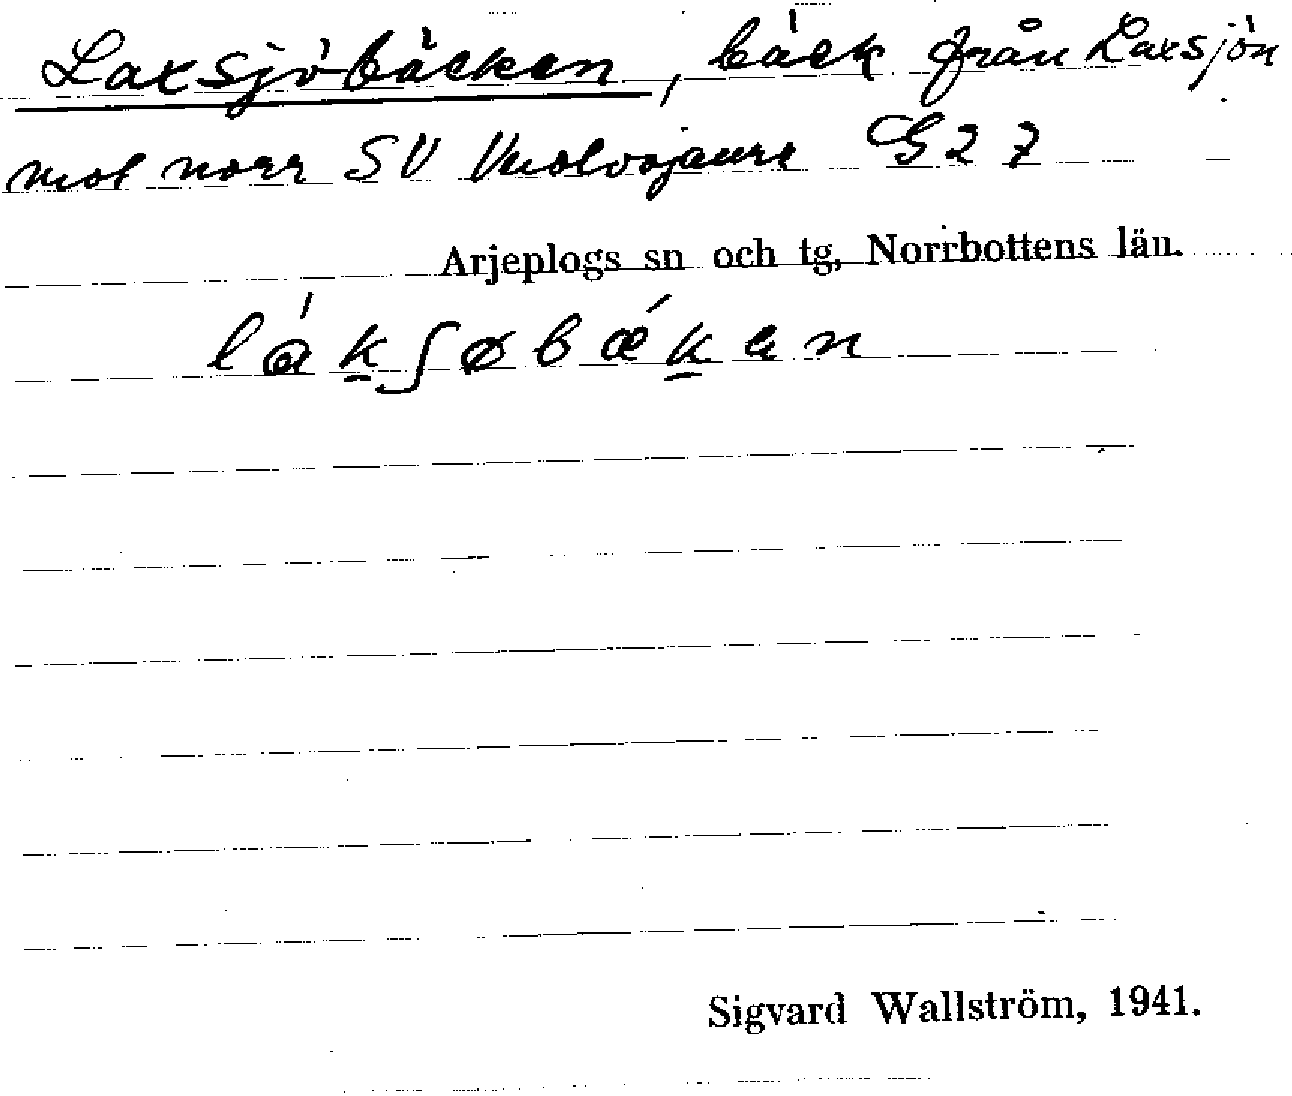 Laxsjöbäcken, bäck från Laxsjön
mot norr SV Vuolvojaure G27
Arjeplogs sn och tg, Norrbottens län.
lák̲ʃøbǽk̲en
Sigvard Wallström, 1941.